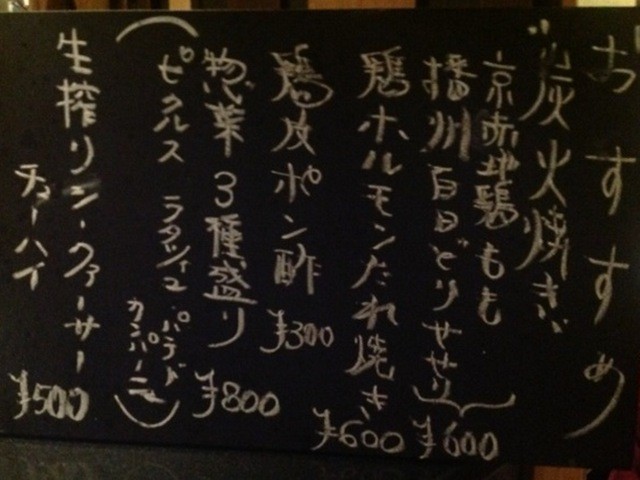 おすすめ
炭火焼き
京赤地鶏もも
播州百日どりせせり
¥600
鶏ホルモンたれ焼き
¥600
鶏皮ポン酢
¥300
惣菜3種盛り
¥800
(ピクルス ラタトゥイユ パテド カンパーニュ)
生搾りシークァーサー
チューハイ
¥500